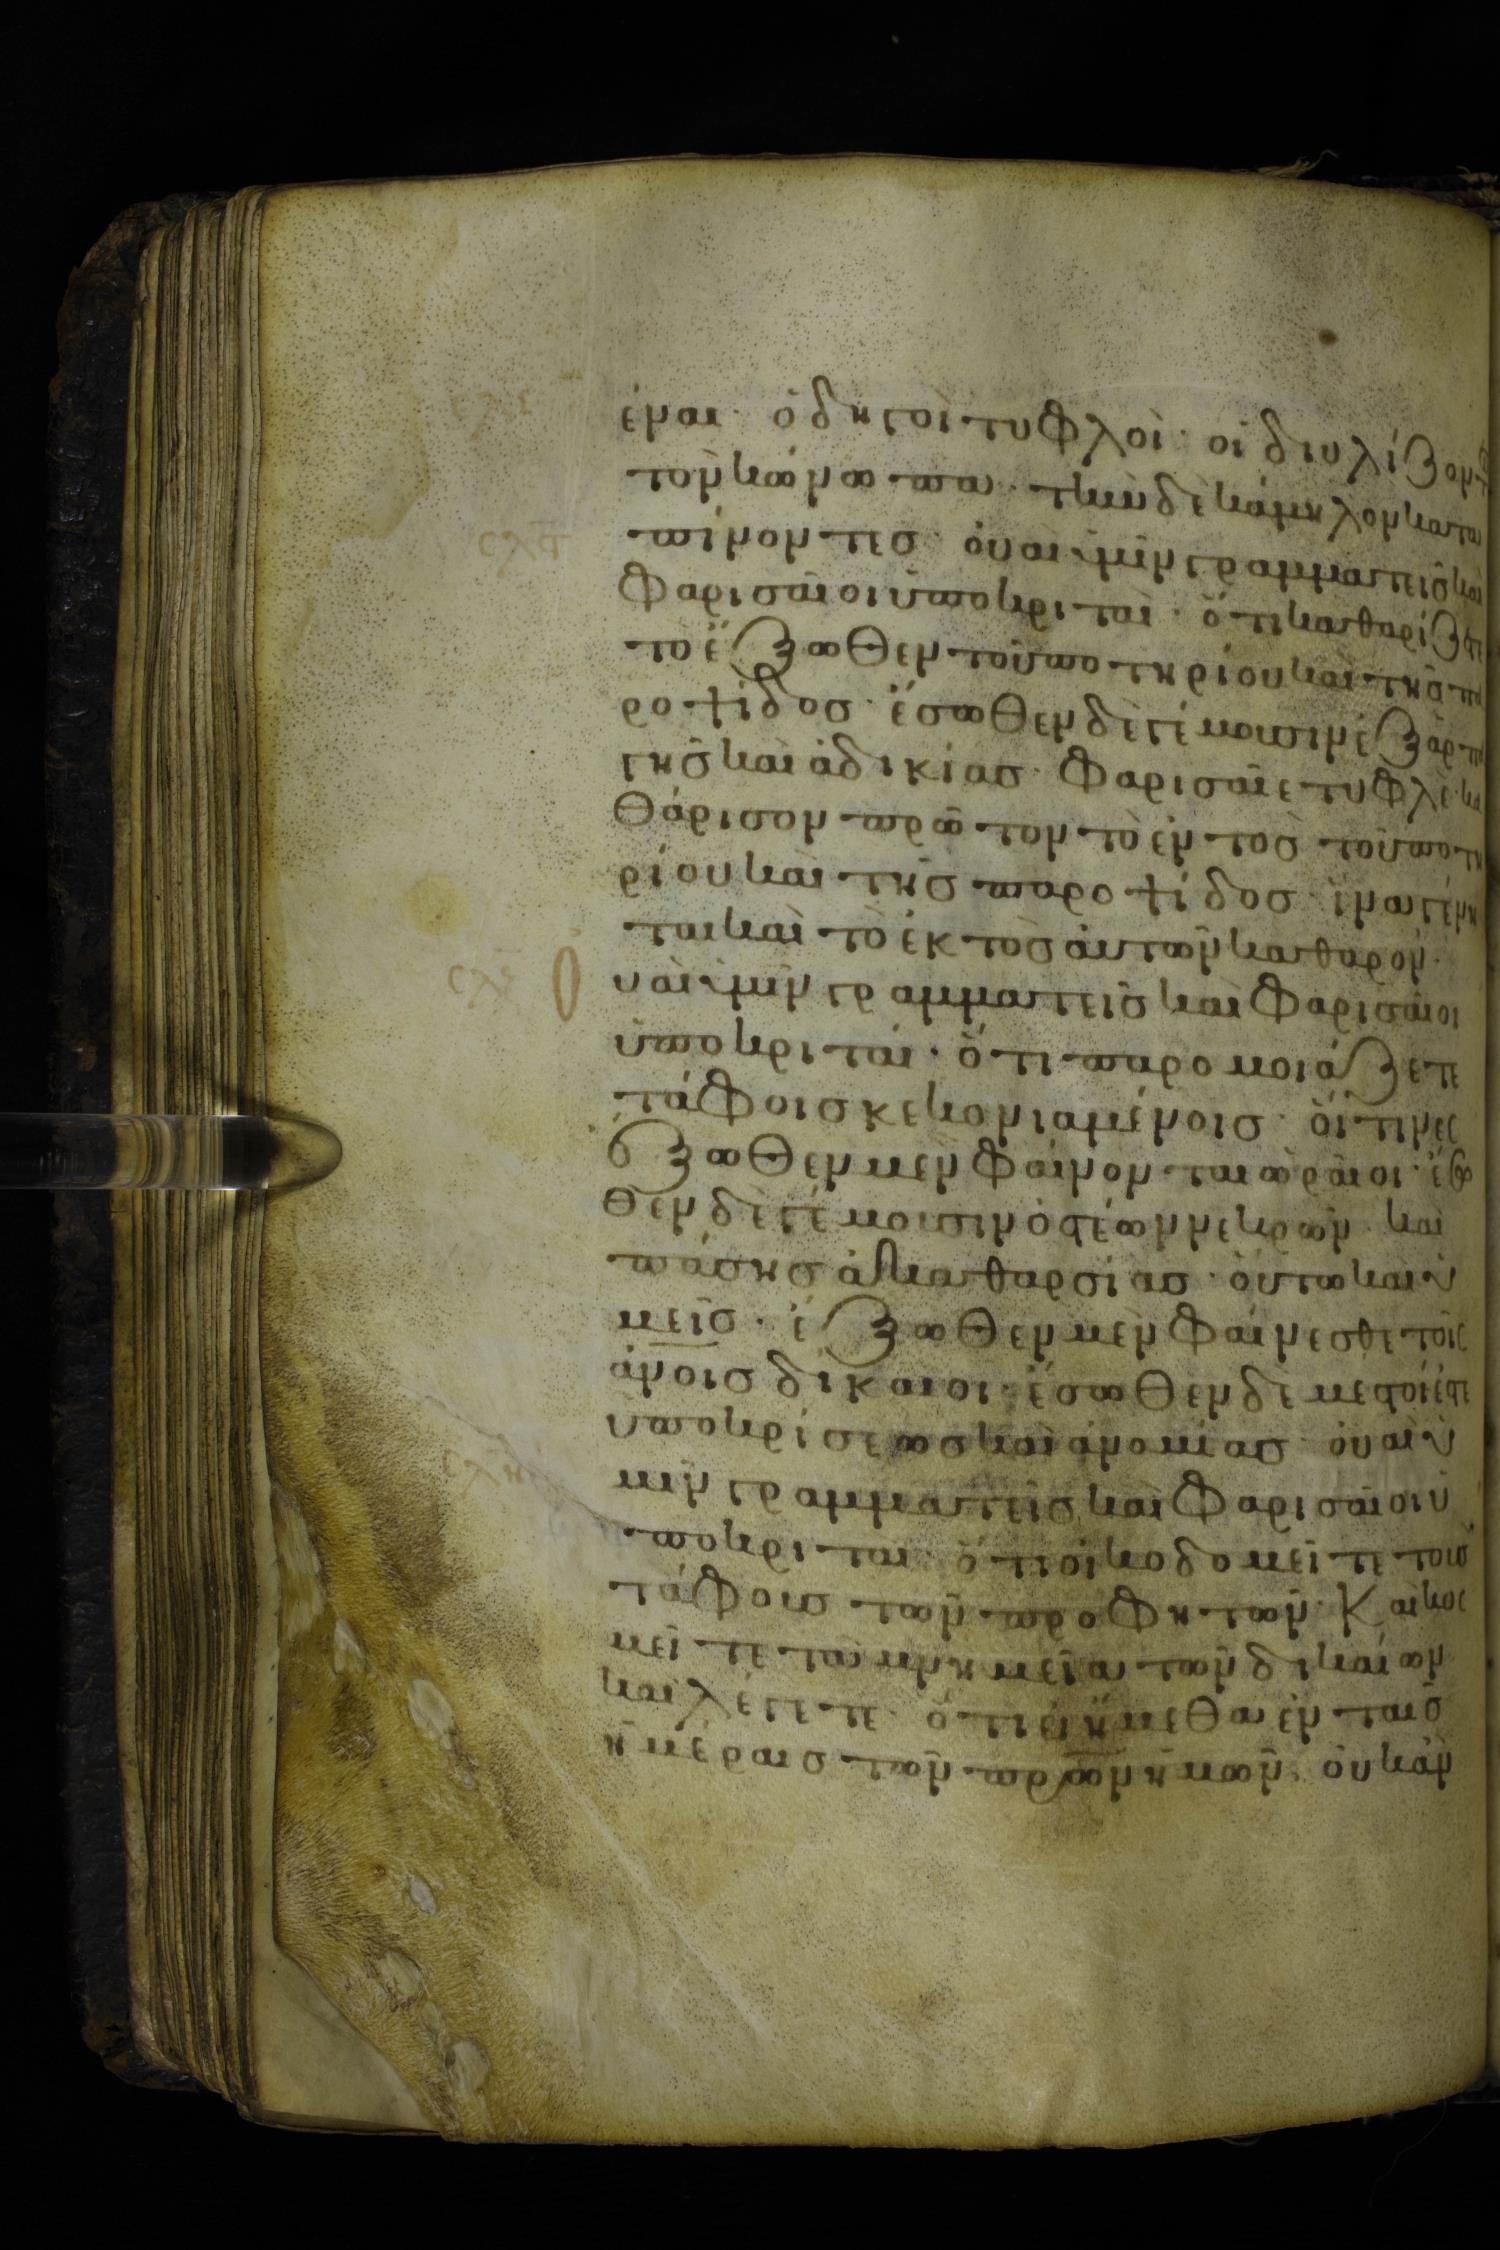 ϲλε
ἐναι· ὁδηγοὶ τυφλοί· οἱ διυλίζοντ
τὸν κώνωπα· τὴν δὲ κάμηλον κατα
ϲλϛ
πίνοντεσ· ὀυαὶ ὑμῖν γραμματεῖσ καὶ
φαρισαῖοι ὑποκριταί· ὅτι καθαρίζετε
τὸ ἔξωθεν τοῦ ποτηρίου καὶ τῆσ πα
ροψίδοσ· ἔσωθεν δὲ γέμουσιν ἐξ ἁρπα
γῆσ καὶ ἀδικίασ· φαρισαῖε τυφλέ· κα
θάρισον πρῶτον τὸ ἐντὸσ τοῦ ποτη
ρίου καὶ τῆσ παροψίδοσ· ἵνα γένη
ται καὶ τὸ ἐκτὸσ ἀυτῶν καθαρόν·
ϲλζ
Ο
υαὶ ὑμῖν γραμματεῖσ καὶ φαρισαῖοι
ὑποκριταί· ὅτι παρομοιάζετε
τάφοισ κεκονιαμένοισ· ὅιτινες
ἔξωθεν μὲν φαίνονται ὡραῖοι· ἔσω
θεν δὲ γέμουσιν ὀστέων νεκρῶν· καὶ
πάσησ ἀκαθαρσίασ· ὁύτω καὶ ὑ
μεῖσ· ἔξωθεν μὲν φαίνεσθε τοῖς
ἀνοισ δίκαιοι· ἔσωθεν δὲ μεστοί ἐστε
ὑποκρίσεωσ καὶ ἀνομίασ· ὀυαὶ ὑ
ϲλη
μῖν γραμματεῖσ καὶ φαρισαῖοι ὑ
ποκριταί· ὅτι ὀικοδομεῖτε τοὺσ
τάφουσ τῶν προφητῶν· Καὶ κοσ
μεῖτε τὰ μνημεῖα τῶν δικαίων
καὶ λέγετε· ὅτι ἐι ἤμεθα ἐν ταῖσ
ἡμέραισ τῶν πρων ἡμῶν· ὀυκ ἂν